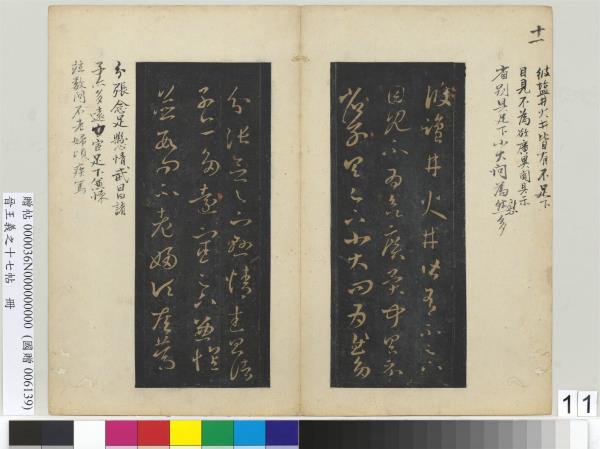 十一
彼鹽井火井皆有不足下
目見不為欲廣異聞具示
省別具足下小大問為慰多
彼鹽井火井皆有不足下
目見不為欲廣異聞具示
省別具足下小大問為慰多
分張念足下懸情武昌諸
子亦多遠宦足下兼懷
並數問不老婦頃疾篤
分張念足懸情武昌諸
子亦多遠宦足下兼懷
並數問不老婦頃疾篤
贈帖 000036N000000000 (國贈 006139)
晉王羲之十七帖 冊
11